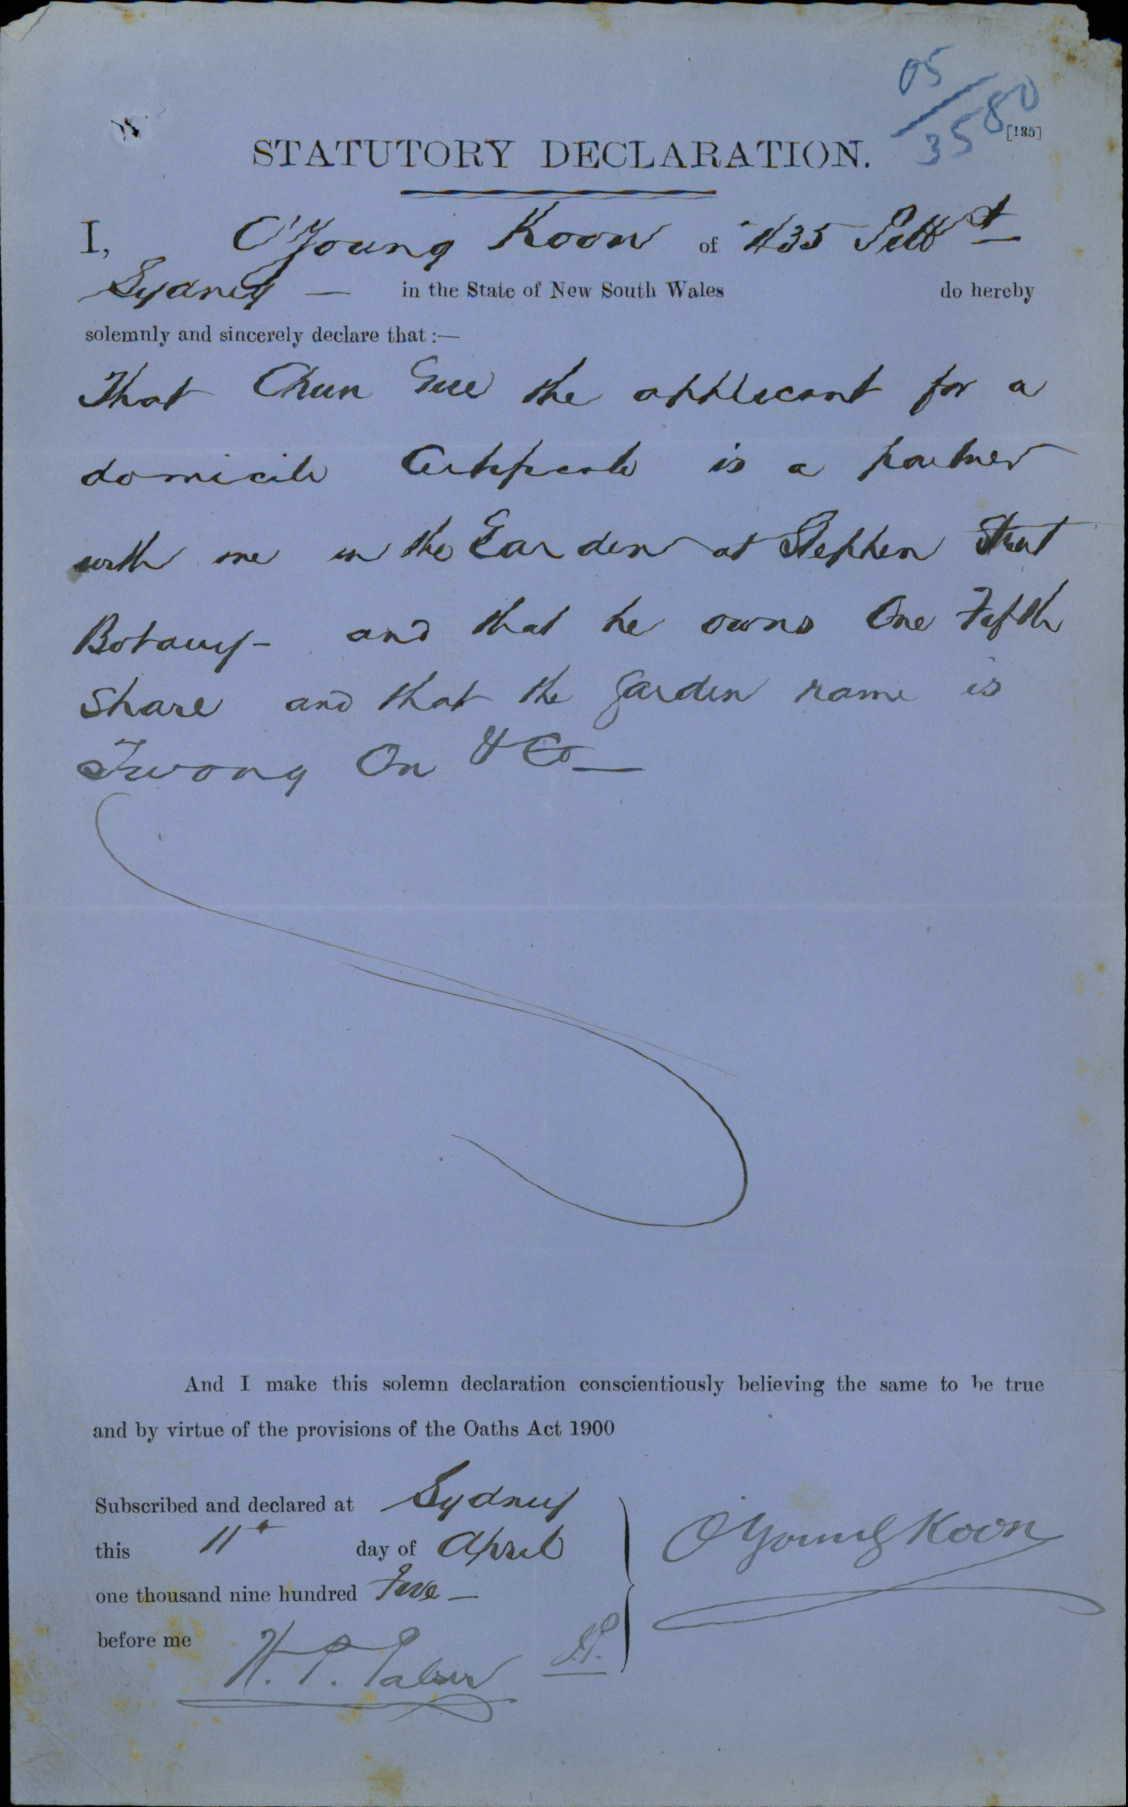 05
3580
[135]
STATUTORY DECLARATION.
I, O'Young Koon of 435 Pitt St
Sydney — in the State of New South Wales do hereby
solemnly and sincerely declare that :—
That Chun Gue the applicant for a
domicile Certificate is a partner
with me in the Garden at Stephen Street
Botany - and that he owns One Fifth
Share and that the Garden name is
Twong On & Co —
And I make this solemn declaration conscientiously believing the same to be true
and by virtue of the provisions of the Oaths Act 1900
Subscribed and declared at Sydney
this 11th day of April
one thousand nine hundred Five —
before me
O'Young Koon
H. P. J.P.